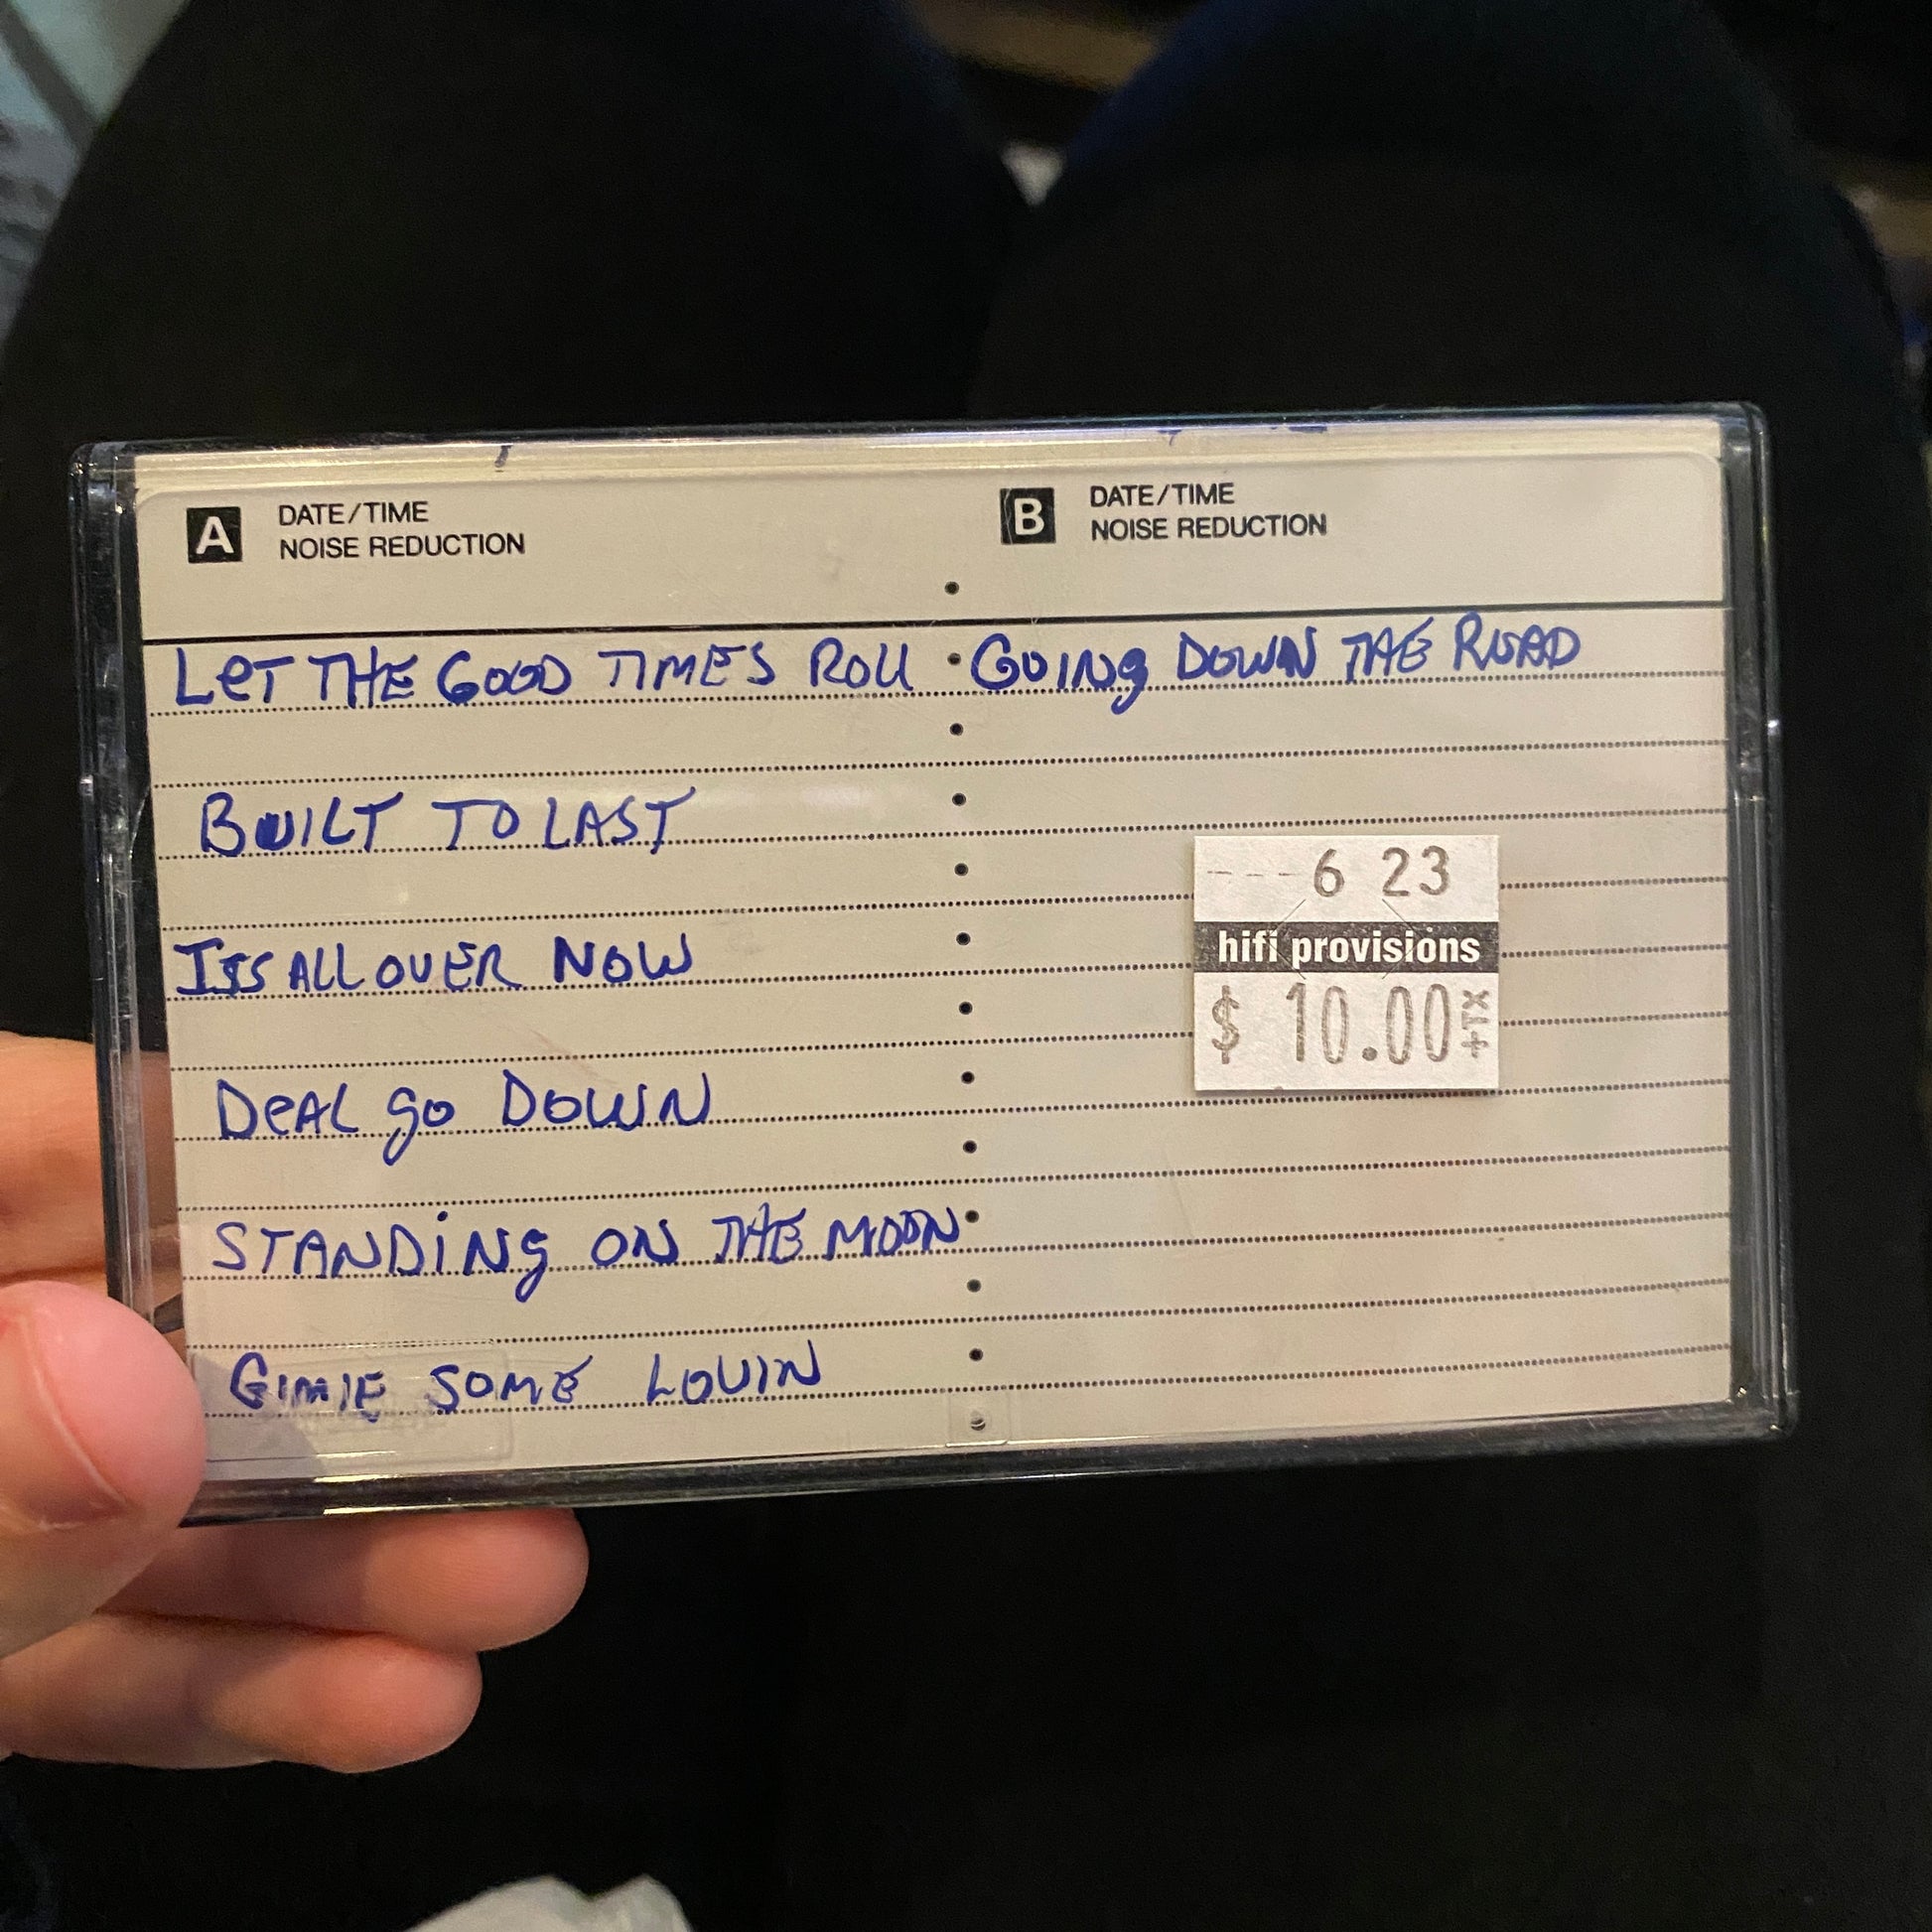 A DATE/TIME
NOISE REDUCTION
LET THE GOOD TIMES ROLL
BUILT TO LAST
ITS ALL OVER NOW
DEAL GO DOWN
STANDING ON THE MOON
GIMIE SOME LOVIN
B DATE/TIME
NOISE REDUCTION
GOING DOWN THE ROAD
---6 23
hifi provisions
$ 10.00 +TX